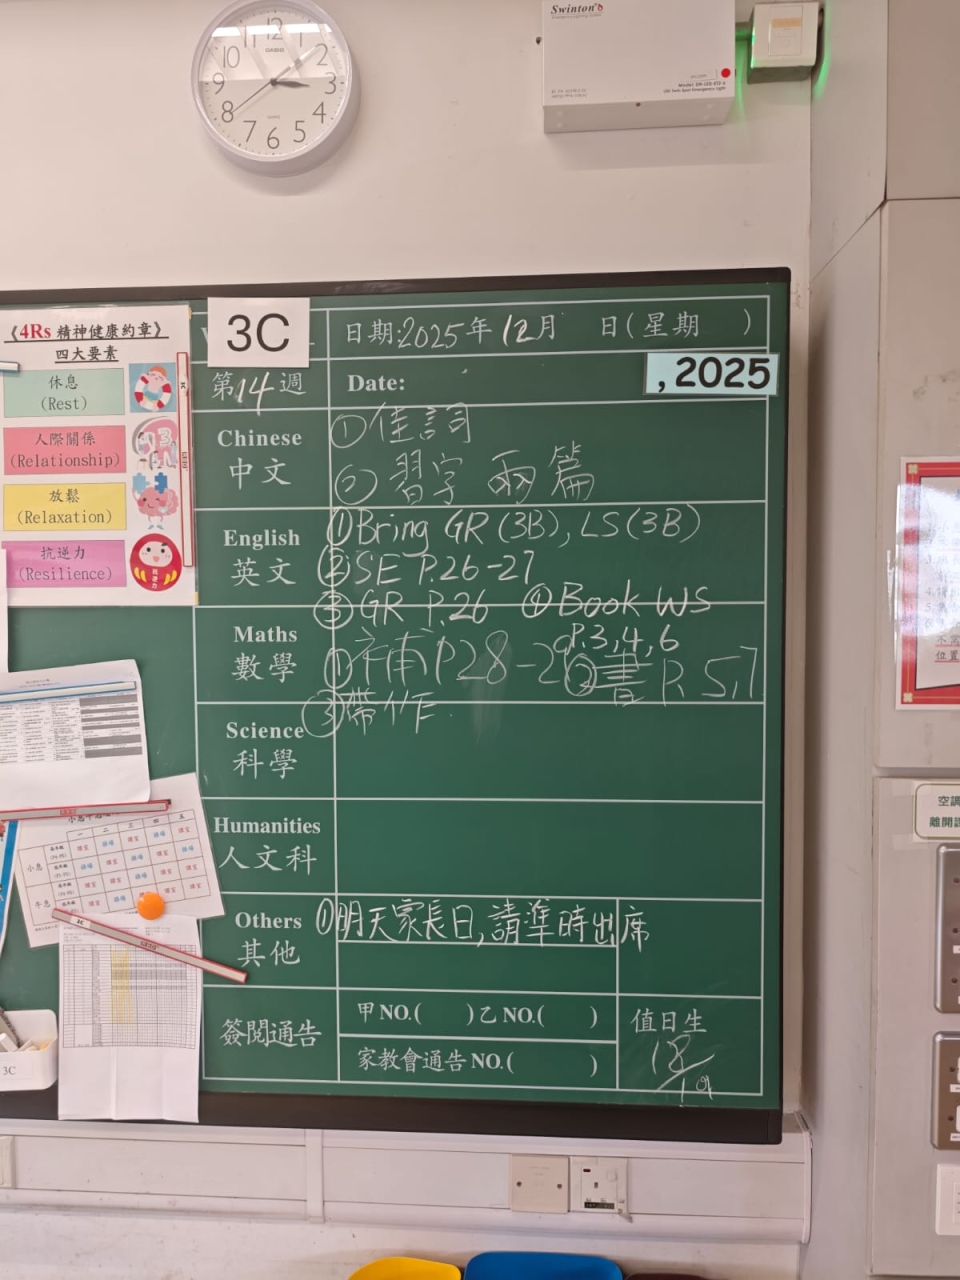 Swinton
CASIO
《4Rs 精神健康約章》
四大要素
休息
(Rest)
人際關係
(Relationship)
放鬆
(Relaxation)
抗逆力
(Resilience)
3C
日期:2025年12月 日(星期 )
第14週
Date:
, 2025
Chinese
中文
①佳詞
②習字 兩篇
English
英文
①Bring GR (3B), LS (3B)
②SE P.26-27
③GR P.26 ④Book WS
P.3,4,6
Maths
數學
①補P28-29 ②書P.5,7
③帶作
Science
科學
Humanities
人文科
Others
其他
①明天家長日,請準時出席
簽閱通告
甲NO.( )乙NO.( )
家教會通告NO.( )
值日生
18
19
3C
空調
離開課
位置